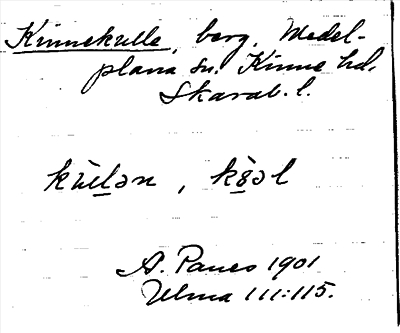 Kinnekulle, berg, Medel-
plana sn. Kinne hd.
Skarab. l.
kùelən, k8̀əl
A. Paues 1901
Ulma 111:115.